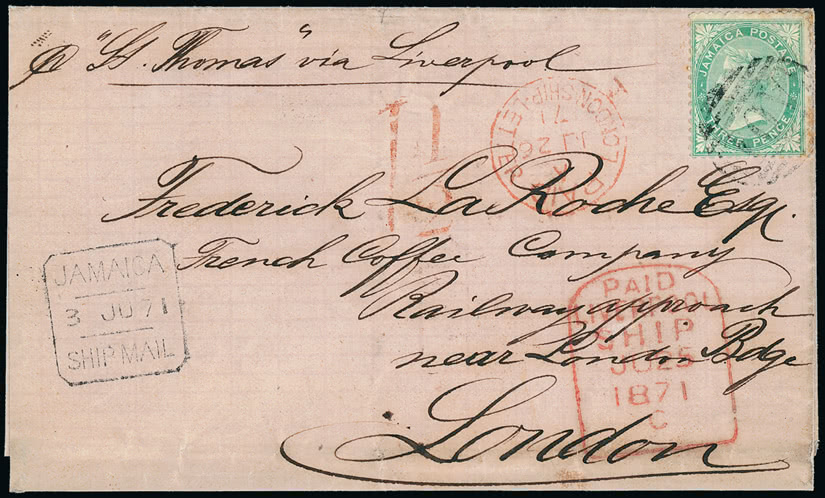 p "St. Thomas" via Liverpool
JAMAICA POSTAGE
THREE PENCE
LONDON SHIP-LETTER
PAID
JU 26
71
Frederick La Roche Esq.
French Coffee Company
Railway approach
near London Bdge
London
JAMAICA
3 JU 71
SHIP MAIL
PAID
LIVERPOOL
SHIP
JU 25
1871
C